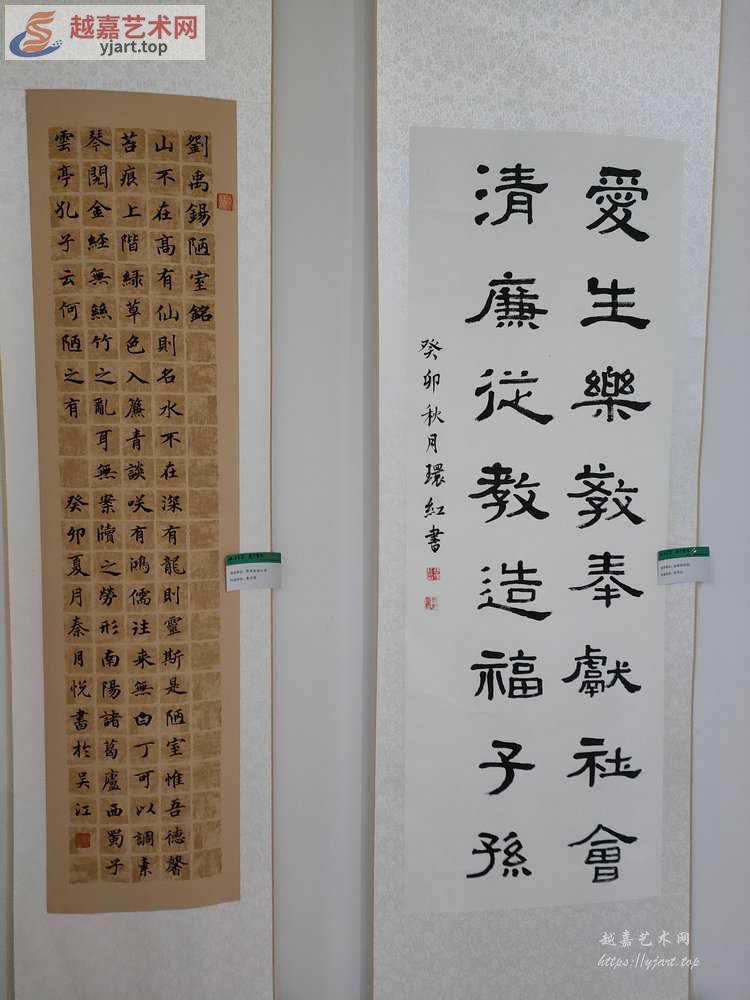 越嘉艺术网
yjart.top
劉禹錫陋室銘
山不在高有仙則名水不在深有龍則靈斯是陋室惟吾德馨
苔痕上階緑草色入簾青談咲有鴻儒往来無白丁可以調素
琴閲金経無絲竹之亂耳無案牘之勞形南陽諸葛廬西蜀子
雲亭孔子云何陋之有 癸卯夏月秦月悦書於吴江
愛生樂教奉獻社會
清廉從教造福子孫
癸卯秋月環紅書
越嘉艺术网
https://yjart.top